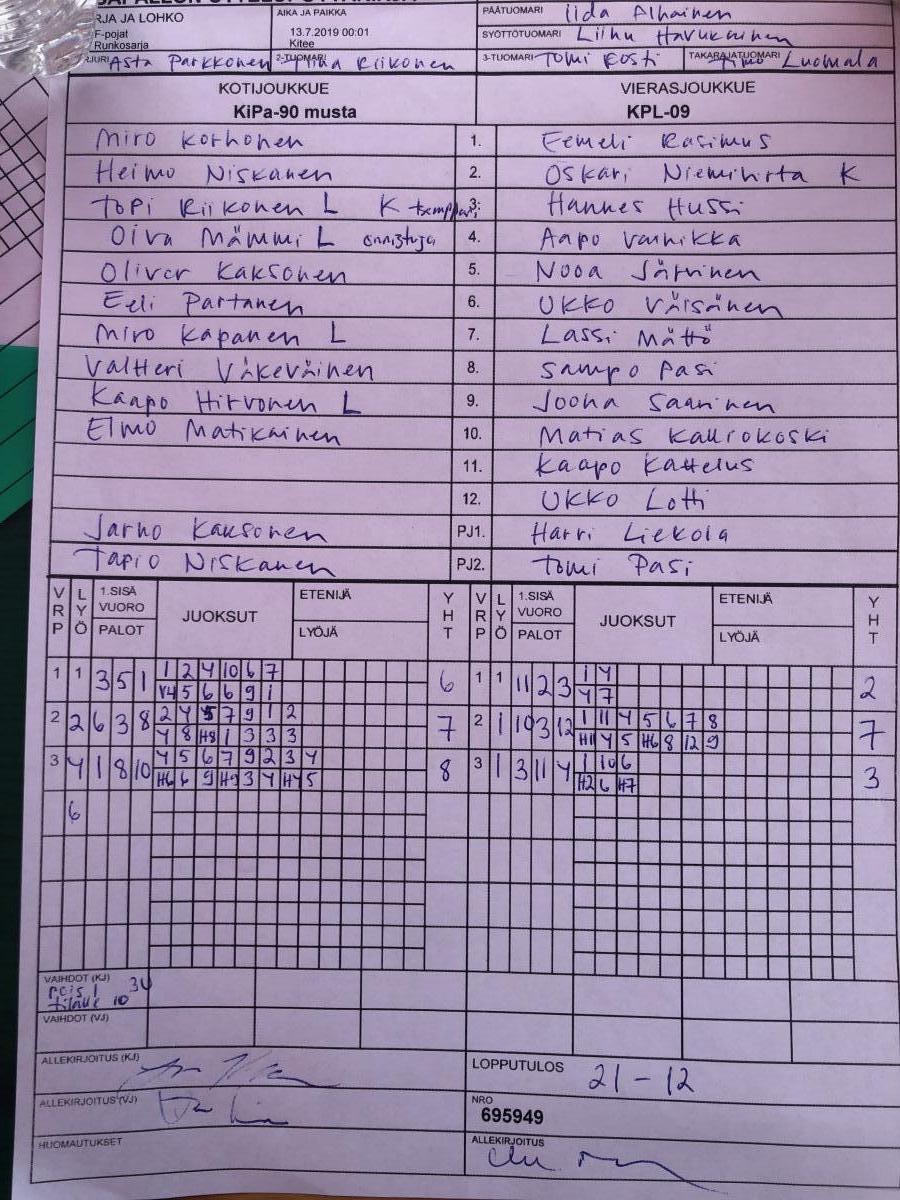 RJA JA LOHKO
F-pojat
Runkosarja
AIKA JA PAIKKA
13.7.2019 00:01
Kitee
PÄÄTUOMARI Iida Alhainen
SYÖTTÖTUOMARI
RJURI Asta Parkkonen 2-TUOMARI Riikonen 3-TUOMARI Tomi Kosti TAKARAJATUOMARI Luomala
KOTIJOUKKUE VIERASJOUKKUE
KiPa-90 musta KPL-09
Miro Korhonen 1. Eemeli Rasimus
Heimo Niskanen 2. Oskari Niemihirta K
Topi Riikonen L K 3. Hannes Hussi
Oiva Mämmi L onnistuja 4. Aapo Vainikka
Oliver Kaksonen 5. Nooa Järvinen
Eeli Partanen 6. Ukko Väisänen
Miro Kapanen L 7. Lassi Mättö
Valtteri Väkeväinen 8. Sampo Pasi
Kaapo Hirvonen L 9. Joona Saarinen
Elmo Matikainen 10. Matias Kallrokoski
11. Kaapo Kattelus
12. Ukko Lotti
Jarno Kaksonen PJ1. Harri Liekola
Tapio Niskanen PJ2. Tomi Pasi
VRP LYÖ 1.SISÄ VUORO PALOT JUOKSUT ETENIJÄ LYÖJÄ YHT VRP LYÖ 1.SISÄ VUORO PALOT JUOKSUT ETENIJÄ LYÖJÄ YHT
1 1 3 5 1 1 2 4 10 6 7 6 1 1 11 2 3 1 4 2
V4 5 6 6 9 1 4 7
2 2 6 3 8 2 4 5 7 9 1 2 7 2 1 10 3 12 1 11 4 5 6 7 8 7
4 8 H8 1 3 3 3 H11 4 5 H6 8 12 9
3 4 1 8 10 4 5 6 7 9 2 3 4 8 3 1 3 11 4 1 10 6 3
H6 6 9 H9 3 4 H4 5 H2 6 H7
6
VAIHDOT (KJ)
pois 1 3U
tilalle 10
VAIHDOT (VJ)
ALLEKIRJOITUS (KJ) LOPPUTULOS 21-12
ALLEKIRJOITUS (VJ) NRO
695949
HUOMAUTUKSET ALLEKIRJOITUS